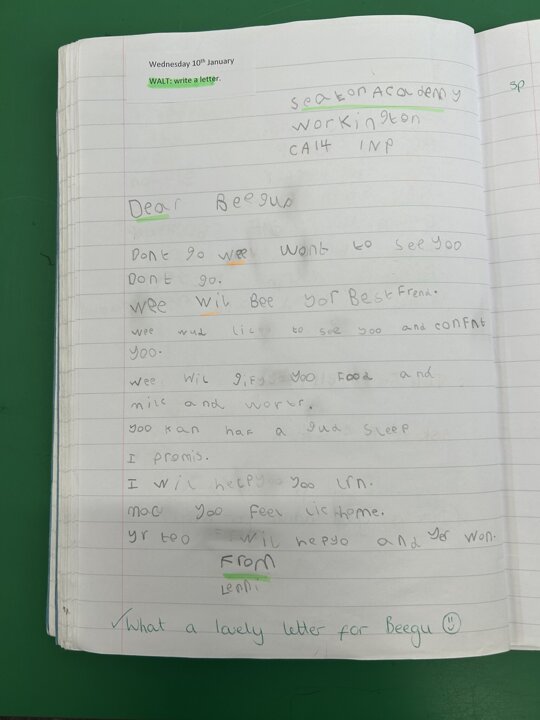 Wednesday 10th January
WALT: write a letter.
sp
Seaton Academy
Workington
CA14 1NP
Dear Beegu
Dont go wee wont to see yoo
Dont go.
wee wil Bee yor Best Frend.
wee wud lice to see yoo and confnt
yoo.
wee wil gify yoo Food and
milc and wortr.
yoo kan haf a gud sleep
I promis.
I wil help yoo lrn.
mac yoo feel lic home.
yr teo wil hepyo and yer won.
From
Lenni
✓What a lovely letter for Beegu ☺